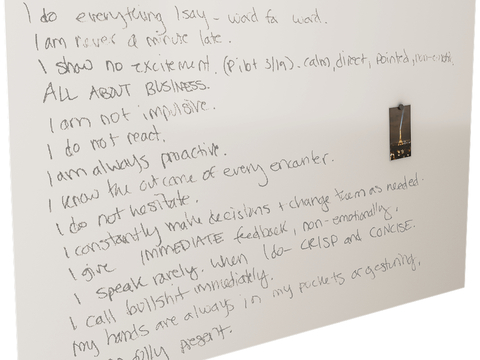 I do everything I say - word for word.
I am never a minute late.
I show no excitement. (Pilot 3/19). calm, direct, pointed, non-emotnl.
ALL ABOUT BUSINESS.
I am not impulsive.
I do not react.
I am always proactive.
I know the outcome of every encounter.
I do not hesitate.
I constantly make decisions + change them as needed.
I give IMMEDIATE feedback, non-emotionally.
I speak rarely. When I do - CRISP and CONCISE.
I call bullshit immediately.
my hands are always in my pockets or gesturing.
fully present.